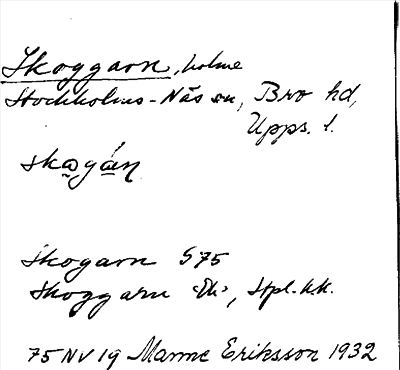 Skoggarn, holme
Stockholms-Näs sn, Bro hd,
Upps. l.
skågán
Skogarn S75
Skoggarn Ek, Stpl.-kk.
75 NV 19 Manne Eriksson 1932